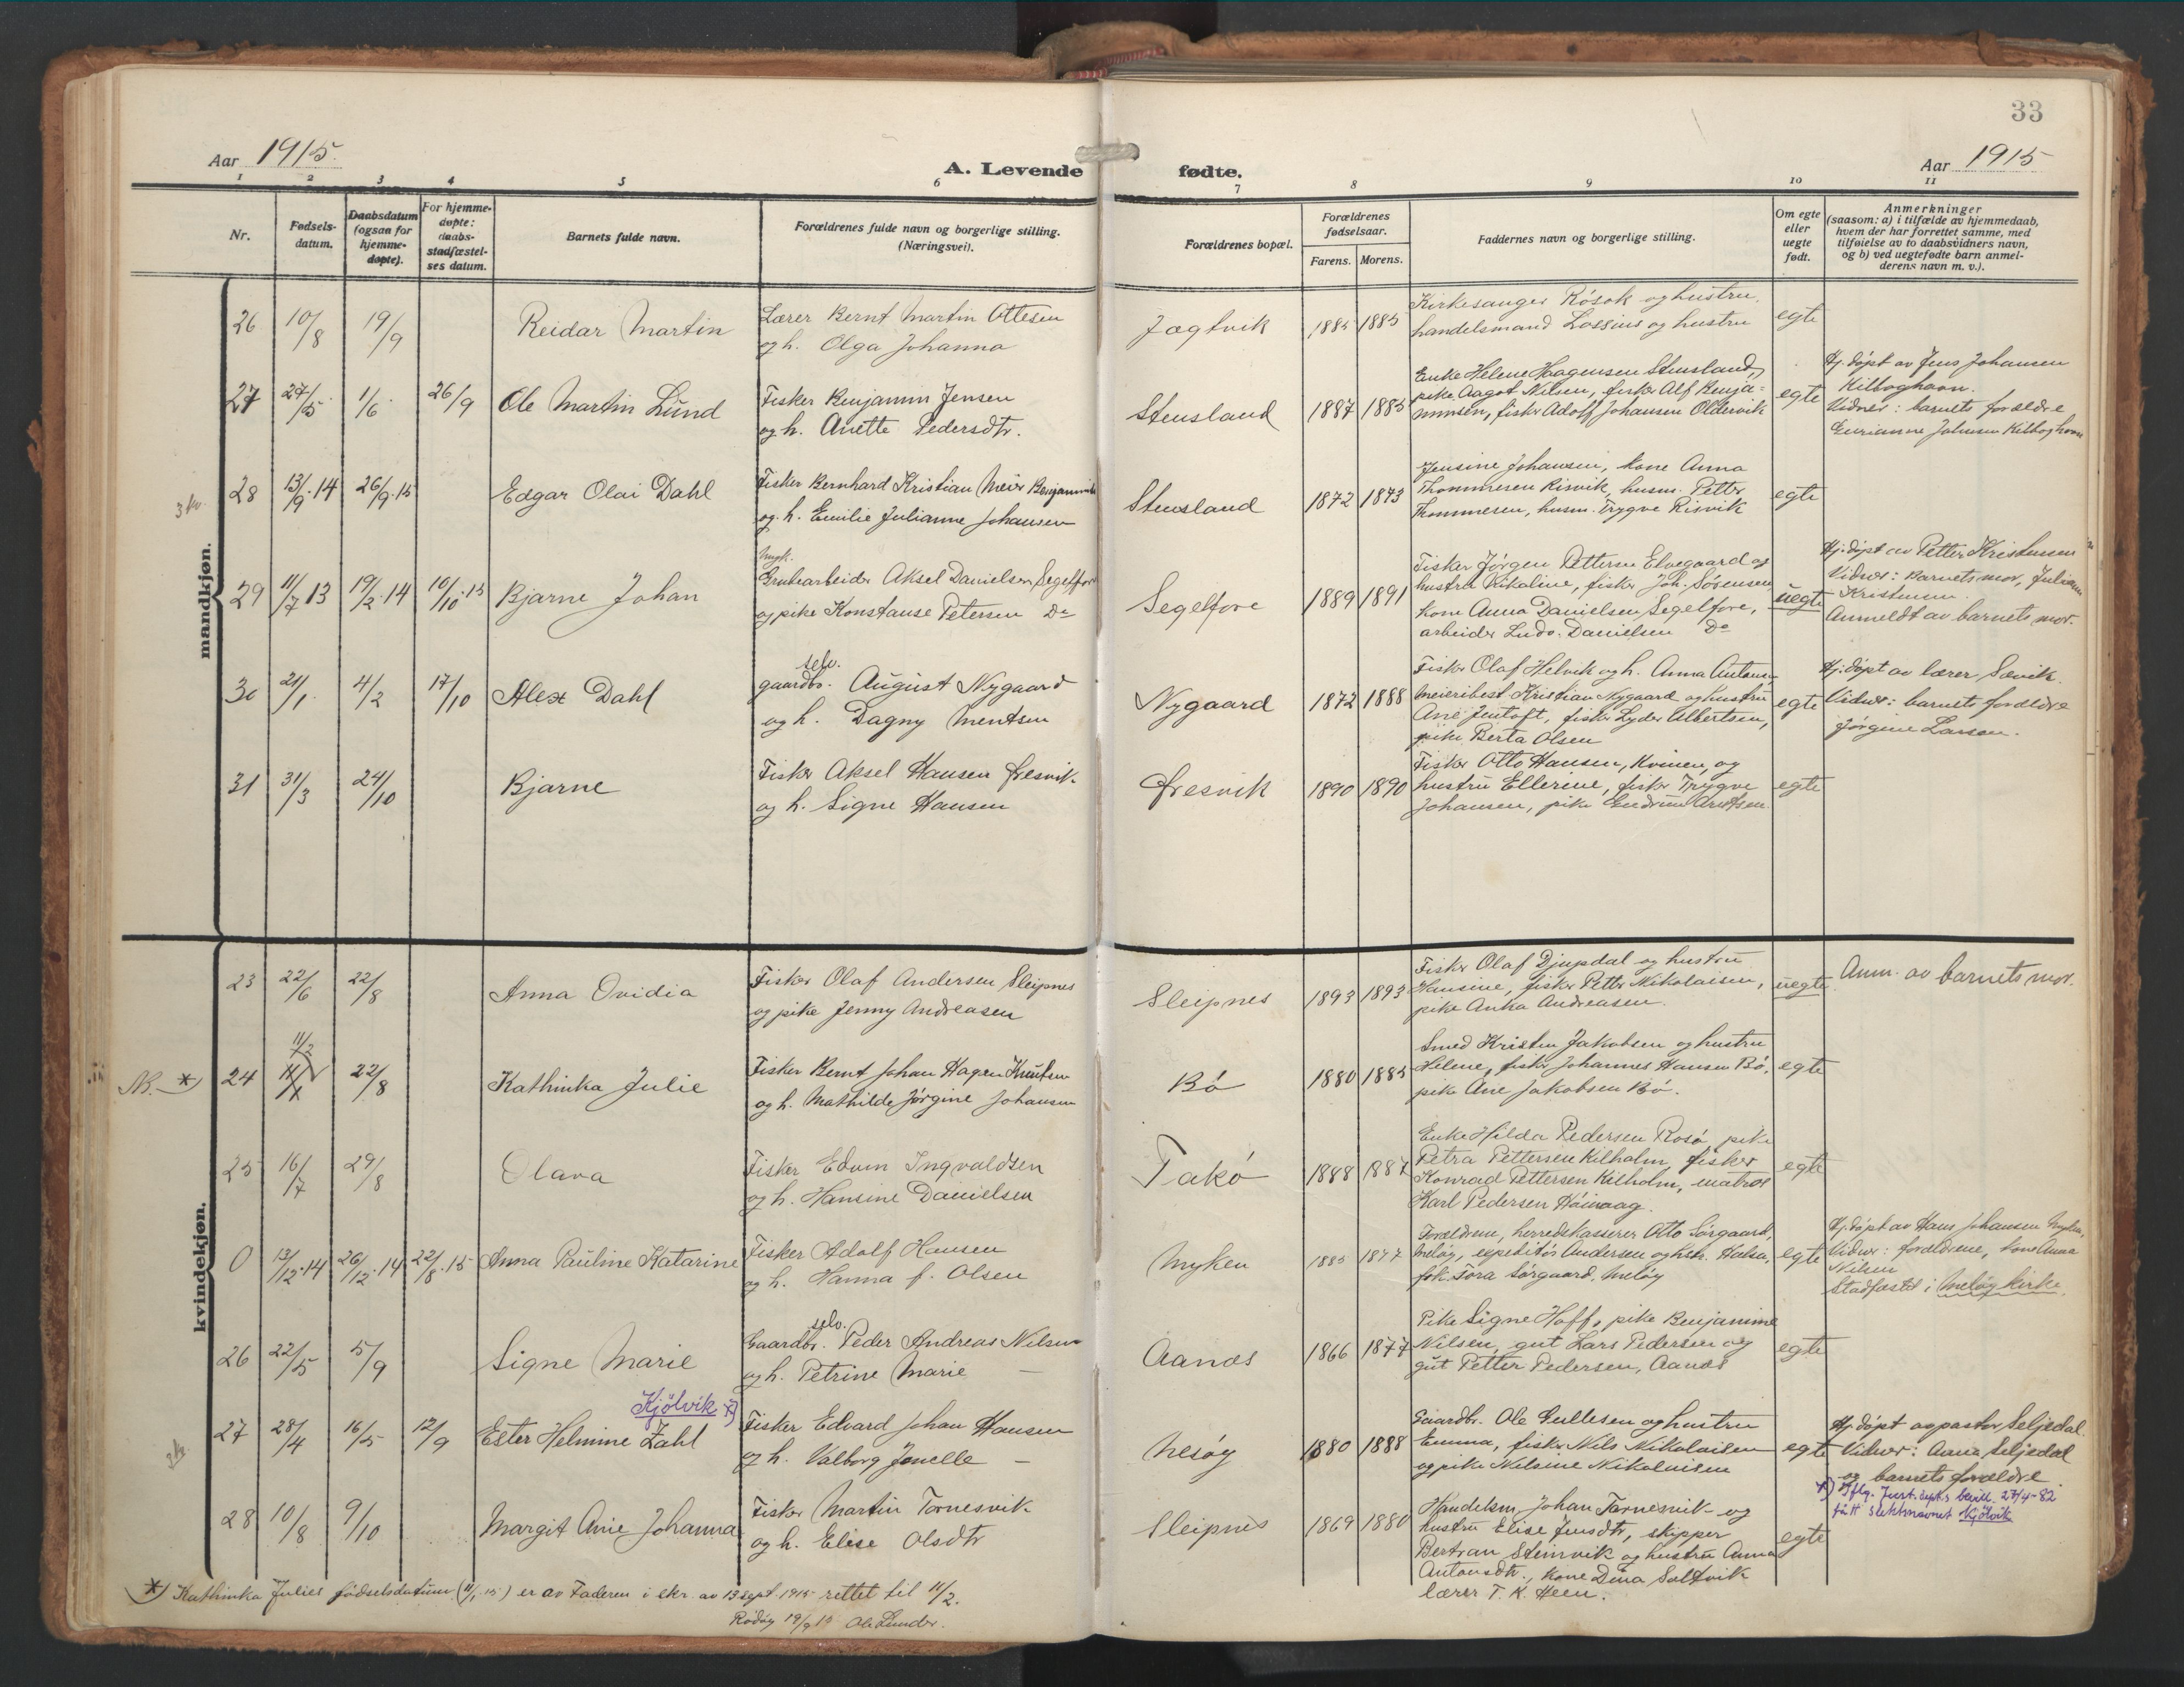 33
Aar 1915.
A. Levende fødte.
Aar 1915
1 2 3 4 5 6 7 8 9 10 11
Nr.
Fødsels-
datum.
Daabsdatum
(ogsaa for
hjemme-
døpte).
For hjemme-
døpte:
daabs-
stadfæstel-
ses datum.
Barnets fulde navn.
Forældrenes fulde navn og borgerlige stilling.
(Næringsvei).
Forældrenes bopæl.
Forældrenes
fødselsaar.
Farens. Morens.
Faddernes navn og borgerlige stilling.
Om egte
eller
uegte
født.
Anmerkninger
(saasom: a) i tilfælde av hjemmedaab,
hvem der har forrettet samme, med
tilføielse av to daabsvidners navn,
og b) ved uegtefødte barn anmel-
derens navn m. v.).
mandkjøn.
26 10/8 19/9 Reidar Martin
Lærer Bernt Martin Ottesen
og h. Olga Johanna
Jægtvik 1885 1885
Kirkesanger Røsok og hustru,
handelsmand Lossius og hustru
egte
27 27/5 1/6 26/9 Ole Martin Lund
Fisker Benjamin Jensen
og h. Anette Pedersdtr.
Stensland 1887 1885
Enke Helene Haagensen Stensland,
pike Aagot Nilsen, fisker Alf Benja-
minsen, fisker Adolf Johansen Oldervik
egte
Hj.døpt av Jens Johansen
Kilboghavn.
Vidner: barnets forældre
Johnsen Kilboghavn
3 kv.
28 13/9.14 26/9.15 Edgar Olai Dahl
Fisker Bernhard Kristian Meier Benjaminsen
og h. Emilie Julianne Johansen
Stensland 1872 1873
Jensine Johansen, kone Anna
Thommesen Risvik, husm. Petter
Thommesen, husm. Trygve Risvik
egte
29 11/7 13 19/2.14 10/10.15 Bjarne Johan
Ungk.
Grubearbeider Aksel Danielsen Segelfore
og pike Konstanse Petersen Do
Segelfore 1889 1891
Fisker Jørgen Pettersen Elvegaard og
hustru Rikaline, fisker Joh. Sørensen,
kone Anna Danielsen Segelfore,
arbeider Ludv. Danielsen Do
uegte
Hj.døpt av Petter Kristensen
Vidner: Barnets mor, Juliane
Kristensen.
Anmeldt av barnets mor.
30 21/1 4/2 17/10 Alex Dahl
selv.
gaardbr. August Nygaard
og h. Dagny Mentsen
Nygaard 1872 1888
Fisker Olaf Helvik og h. Anna Antonsen
meieribest. Kristian Nygaard og hustru
Ane Jentoft, fisker Lyder Albertsen,
pike Berta Olsen
egte
Hj.døpt av lærer Sævik.
Vidner: barnets forældre
Jørgine Larsen.
31 31/3 24/10 Bjarne
Fisker Aksel Hansen Gresvik
og h. Signe Hansen
Gresvik 1890 1890
Fisker Otto Hansen, Kvinen, og
hustru Ellerine, fisker Trygve
Johansen, pike Gudrun Arntsen
egte
kvindekjøn.
23 22/6 22/8 Anna Ovidia
Fisker Olaf Andersen Sleipnes
og pike Jenny Andreasen
Sleipnes 1893 1893
Fisker Olaf Djupdal og hustru
Hansine, fisker Petter Nikolaisen,
pike Anka Andreasen.
uegte
Anm. av barnets mor.
11/2
NB. *) 24 11/1 22/8 Kathinka Julie
Fisker Bernt Johan Hagen Knutsen
og h. Mathilde Jørgine Johansen
Bø 1880 1885
Smed Kristen Jakobsen og hustru
Helene, fisker Johannes Hansen Bø,
pike Ane Jakobsen Bø.
egte
25 16/7 29/8 Olava
Fisker Edvin Ingvaldsen
og h. Hansine Danielsen
Takø 1888 1887
Enke Hilda Pedersen Rosø, pike
Petra Pettersen Kilholm, fisker
Konrad Pettersen Kilholm, matros
Karl Pedersen Høivaag.
egte
0 13/12.14 26/12.14 22/8.15 Anna Pauline Katarine
Fisker Adolf Hansen
og h. Hanna f. Olsen
Myken 1885 1877
Forældrene, herredskasserer Otto Sørgaard,
Meløy, expeditør Andersen og hstr. Halsa,
frk. Tora Sørgaard, Meløy
egte
Hj.døpt av Hans Johansen Myken,
Vidner: forældrene, kone Anna
Nilsen
Stadfæstet i Meløy kirke.
26 22/5 5/9 Signe Marie
selv.
Gaardbr. Peder Andreas Nilsen
og h. Petrine Marie —
Aanes 1866 1877
Pike Signe Hoff, pike Benjamine
Nilsen, gut Lars Pedersen og
gut Petter Pedersen, Aanes
egte
Kjölvik *)
27 28/4 16/5 12/9 Ester Helmine Zahl
Fisker Edvard Johan Hansen
og h. Valborg Jonelle —
Nesøy 1880 1888
Gaardbr. Ole Gullesen og hustru
Emma, fisker Nils Nikolaisen
og pike Nilsine Nikolaisen
egte
Hj.døpt av pastor Seljedal.
Vidner: Anna Seljedal
og barnets forældre
*) Iflg. Just.dept.s bevill. 27/4-82
fått slektsnavnet Kjölvik
28 10/8 9/10 Margit Anie Johanna
Fisker Martin Tornesvik
og h. Elise Olsdtr
Sleipnes 1869 1880
Handelsm. Johan Tornesvik og
hustru Elise Jensdtr, skipper
Bertran Steinvik og hustru Anna
Antonsdtr., kone Dina Saltvik
lærer T. K. Heen.
egte
*) Kathinka Julies fødselsdatum (11/1 15) er av Faderen i skr. av 13 sept. 1915 rettet til 11/2.
Rødøy 19/9 15 Ole Lunder.